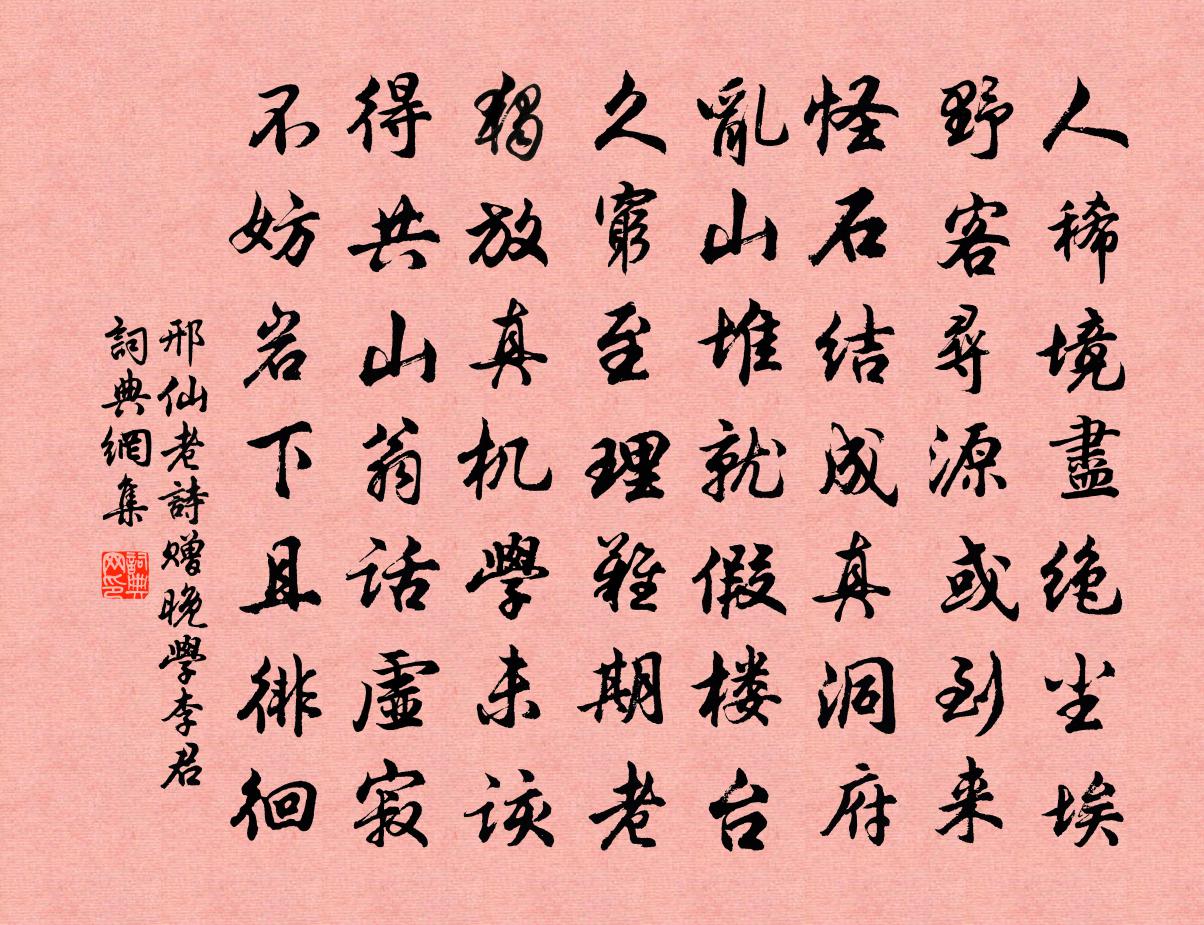 人稀境盡绝尘埃
野客尋源或到来
怪石结成真洞府
亂山堆就假楼台
久窮至理難期老
獨放真机學未该
得共山翁话虚寂
不妨岩下且徘徊
邢仙老詩赠晚學李君
詞典網集
詞典网印